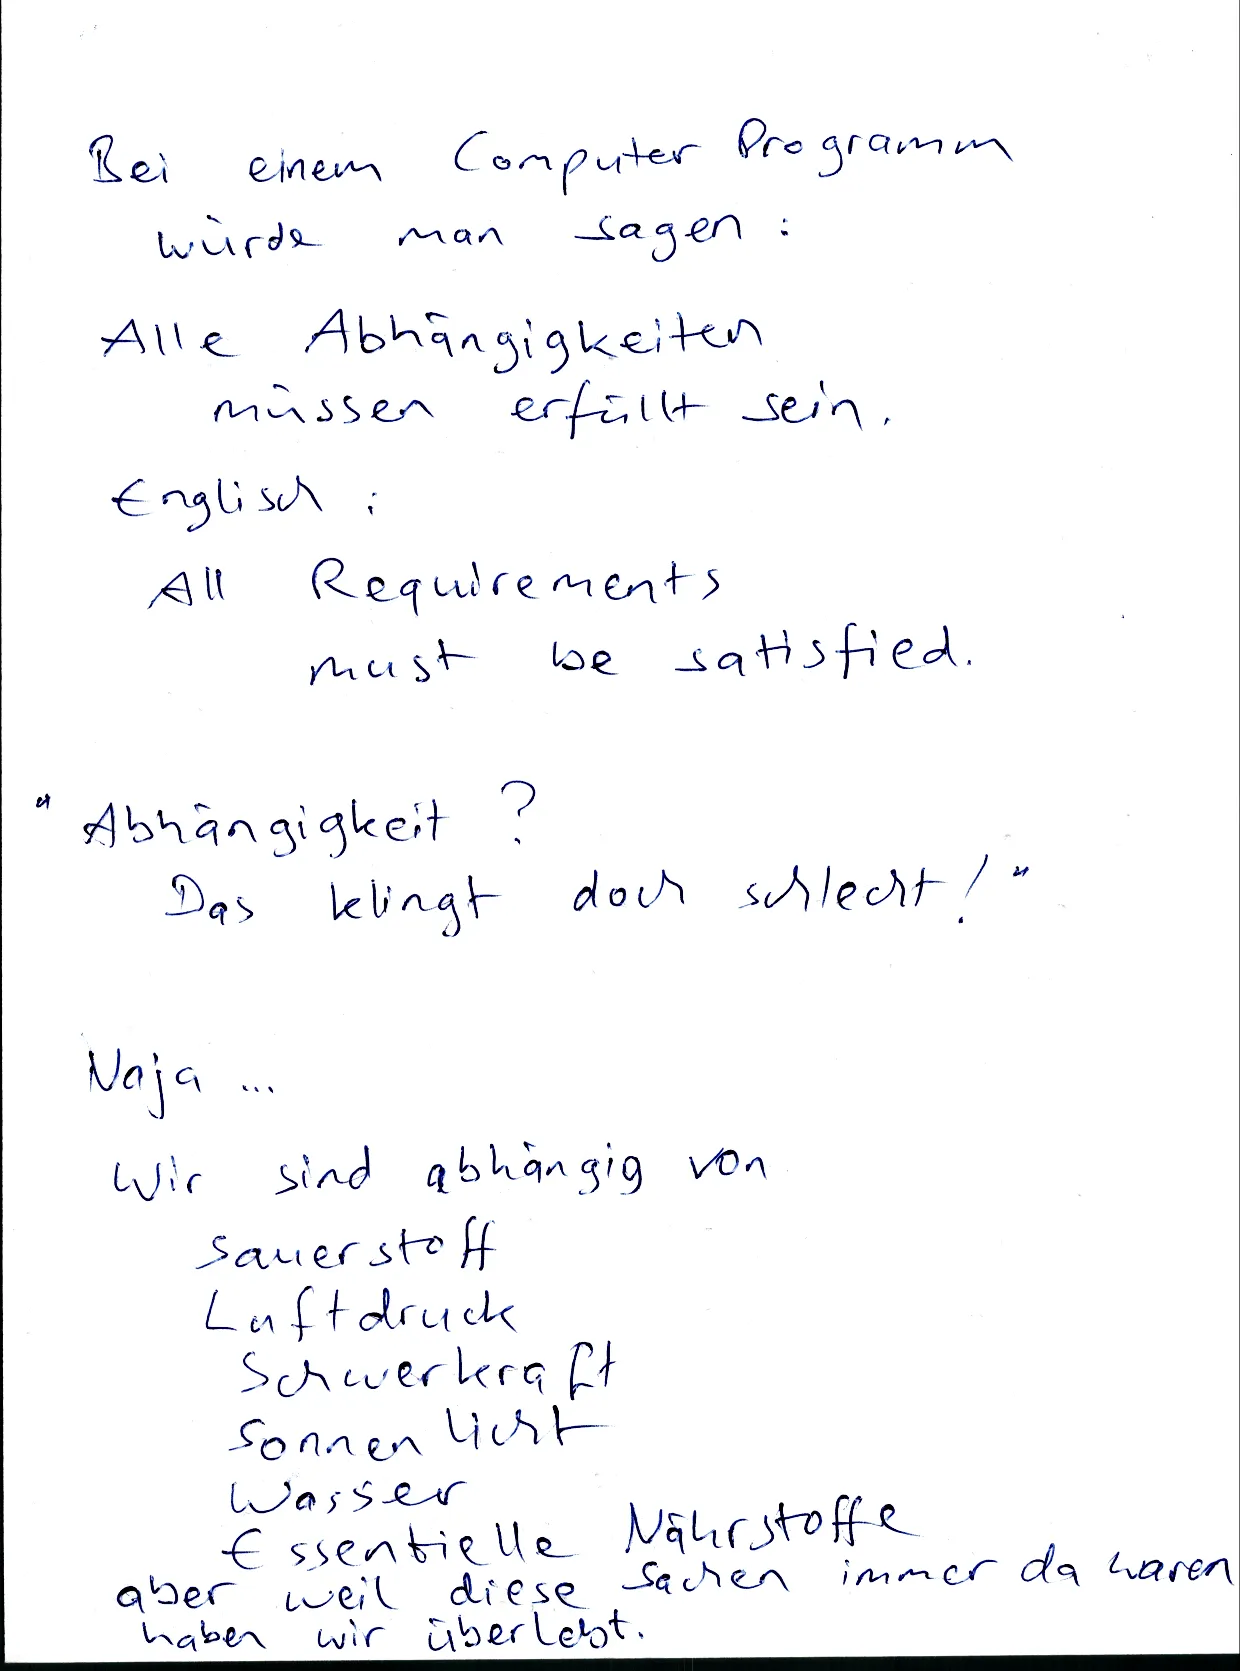 Bei einem Computer Programm
würde man sagen:
Alle Abhängigkeiten
müssen erfüllt sein.
Englisch:
All Requirements
must be satisfied.
"Abhängigkeit?
Das klingt doch schlecht!"
Naja ...
Wir sind abhängig von
Sauerstoff
Luftdruck
Schwerkraft
Sonnenlicht
Wasser
Essentielle Nährstoffe
aber weil diese Sachen immer da waren
haben wir überlebt.